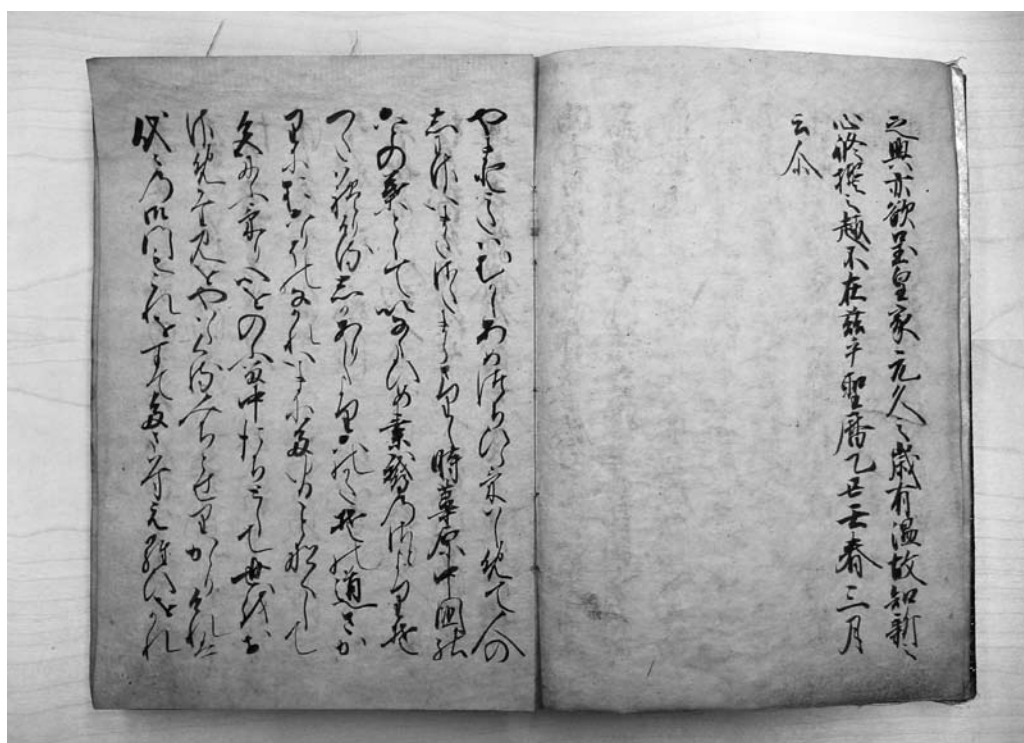 之興亦欲呈皇家元久之歳有温故知新之
心修撰之趣不在茲乎聖暦乙丑王春三月
云尓
やまとうたはむかしあめつちひらけはしめて人の
しわさいまたさたまらさりし時葦原中国の
ことの葉としていなたひめ素鵞のさとよりそ
つたはれりけるしかありしよりこのかたその道さか
りにおこりそのなかれいまにたゆることなくして
色にふけり心をのふる中たちとして世をお
さめ民をやはらくるみちとせりかゝりけれは
代々の御門もこれをすてたまはすえらひをかれ